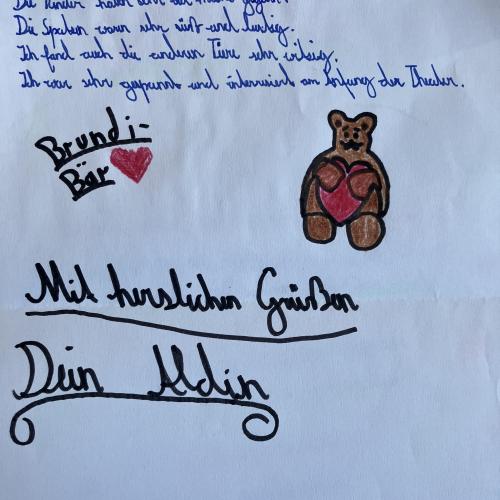 Die Kinder haben
Die Spatzen waren sehr süß und lustig.
Ich fand auch die anderen Tiere sehr witzig.
Ich war sehr gespannt und interresiert am Anfang der Theater.
Brundi-
Bär
Mit herzlichen Grüßen
Dein Aldin